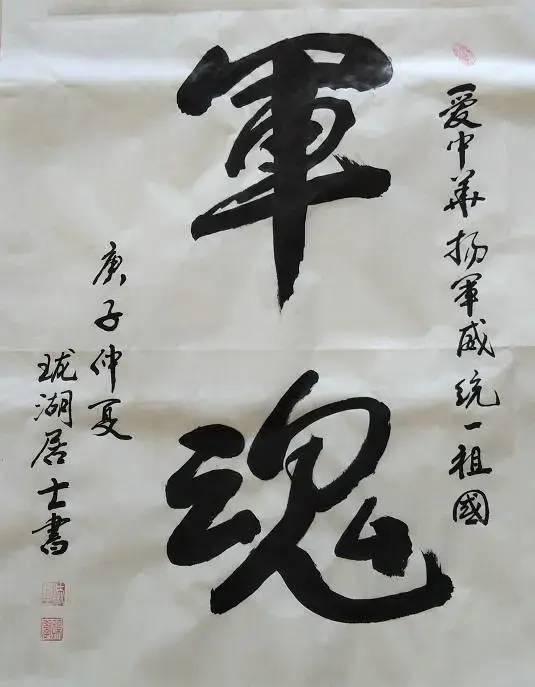 愛中華揚軍威統一祖國
軍魂
庚子仲夏
珑湖居士書